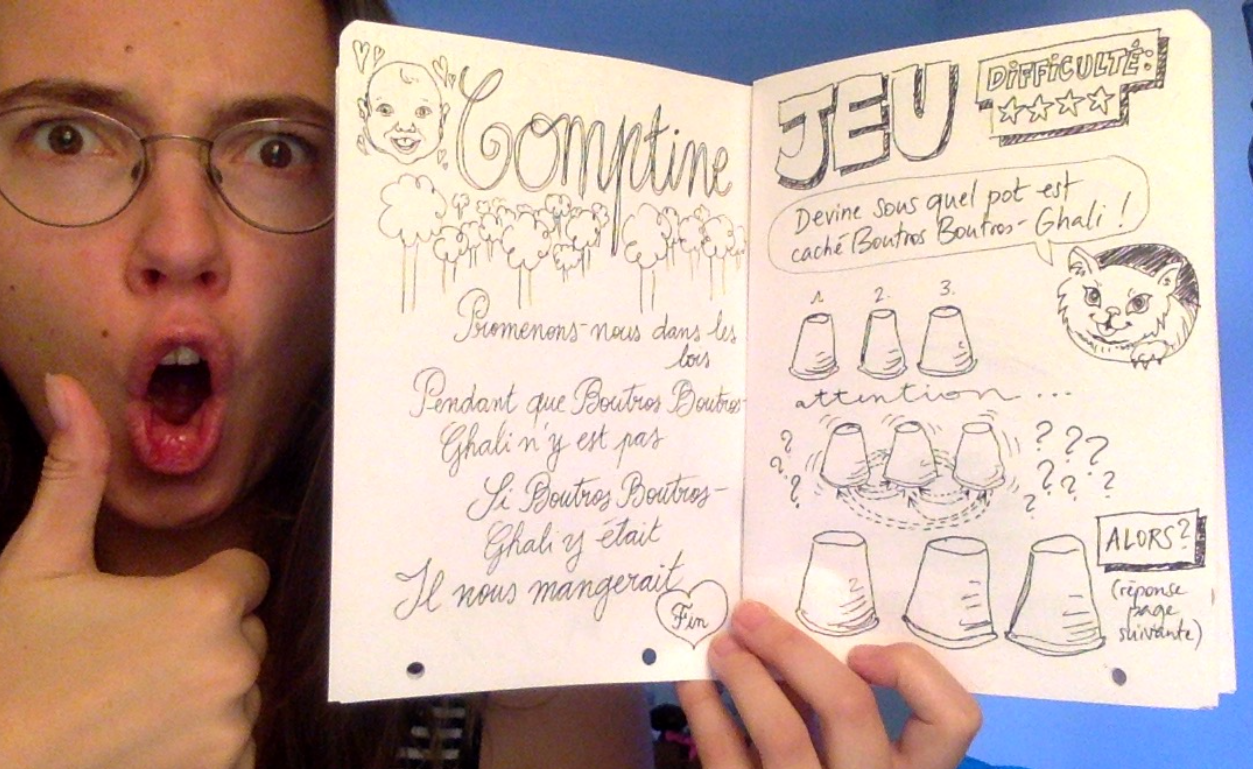 Comptine
Promenons-nous dans les
bois
Pendant que Boutros Boutros-
Ghali n'y est pas
Si Boutros Boutros-
Ghali y était
Il nous mangerait
Fin
JEU
DIFFICULTÉ:
Devine sous quel pot est
caché Boutros Boutros-Ghali !
1. 2. 3.
attention...
? ? ? ? ? ? ? ? ? ?
ALORS?
(réponse
page
suivante)